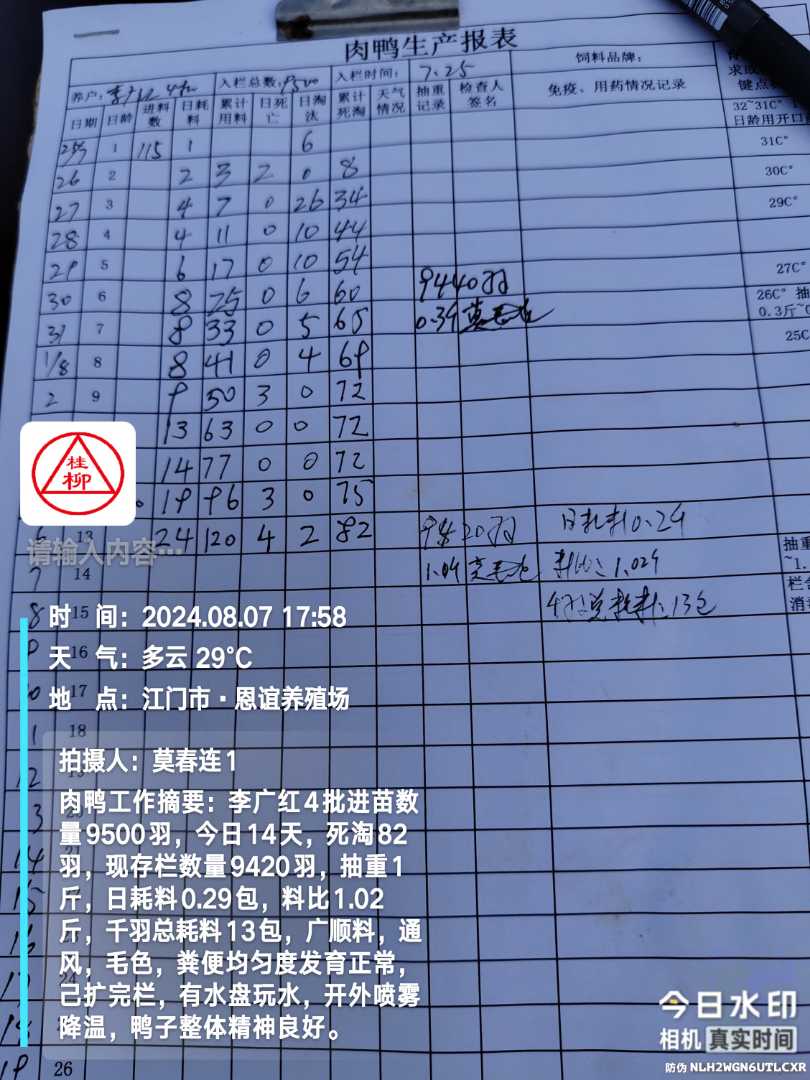 肉鸭生产报表
养户: 入栏总数:9500 入栏时间: 7.25 饲料品牌:
日期 日龄 进料数 日耗料 累计用料 日死亡 日淘汰 累计死淘 天气情况 抽重记录 检查人签名 免疫、用药情况记录
键点
32~31C°
日龄用开口
1 115 1 6 31C°
26 2 2 3 2 0 8 30C°
27 3 4 7 0 26 34 29C°
28 4 4 11 0 10 44
29 5 6 17 0 10 54 27C°
30 6 8 25 0 6 60 9440羽 26C° 抽
31 7 8 33 0 5 65 0.39 莫 0.3斤~
1/8 8 8 41 0 4 69 25C
2 9 9 50 3 0 72
13 63 0 0 72
14 77 0 0 72
19 96 3 0 75
13 24 120 4 2 82 9420羽 日耗料0.29
7 14 1.04 莫 料比:1.029 抽重
~1.
8 15 13包 栏合
消
9 16
10 17
1 18
12
13
14
15
16
17
18
19 26
桂柳
请输入内容…
时 间：2024.08.07 17:58
天 气：多云 29°C
地 点：江门市·恩谊养殖场
拍摄人：莫春连1
肉鸭工作摘要：李广红4批进苗数
量9500羽，今日14天，死淘82
羽，现存栏数量9420羽，抽重1
斤，日耗料0.29包，料比1.02
斤，千羽总耗料13包，广顺料，通
风，毛色，粪便均匀度发育正常，
己扩完栏，有水盘玩水，开外喷雾
降温，鸭子整体精神良好。
今日水印
相机 真实时间
防伪 NLH2WGN6UTLCXR